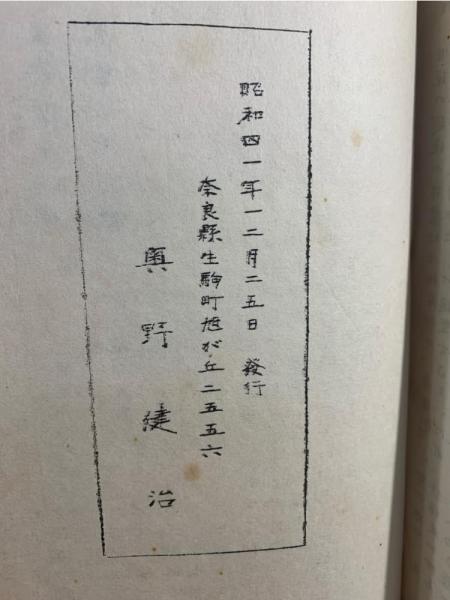 昭和四一年一二月二五日 發行
奈良縣生駒町旭が丘二五五六
奥野健治